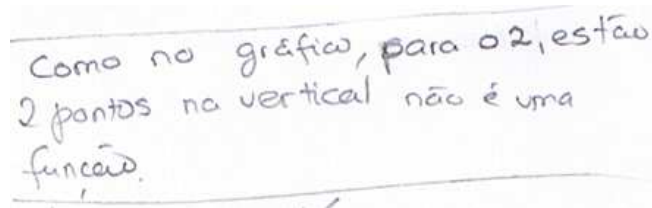 Como no gráfico, para o 2, estão
2 pontos na vertical não é uma
função.